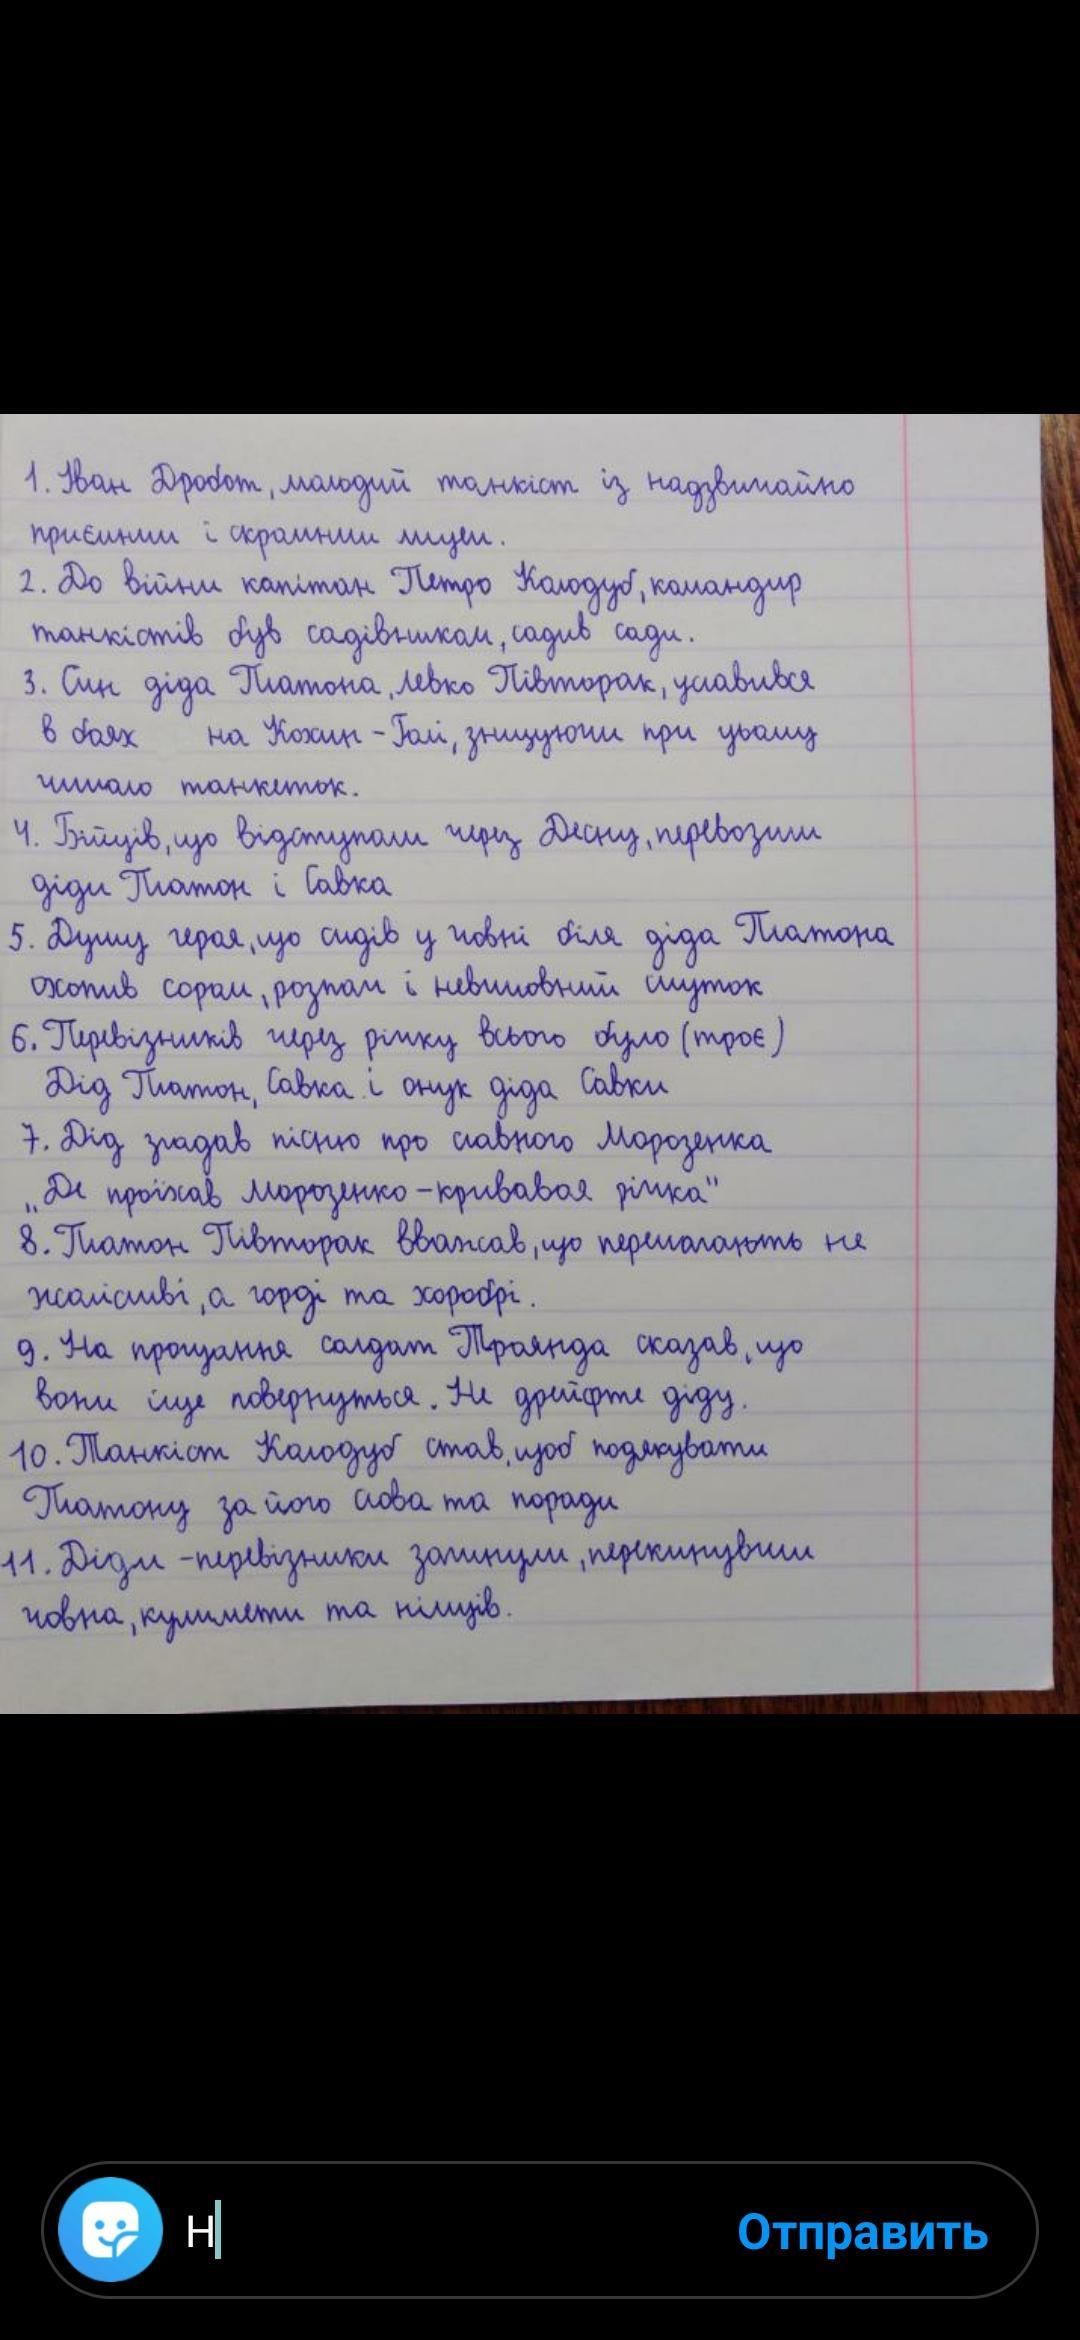 1. Іван Дробот, молодий танкіст із надзвичайно
приємним і скромним лицем.
2. До війни капітан Петро Колодуб, командир
танкістів був садівником, садив сади.
3. Син діда Платона, Левко Півторак, уславився
в боях на Кохин-Голі, знищуючи при цьому
чимало танкеток.
4. Бійців, що відступали через Десну, перевозили
діди Платон і Савка
5. Душу героя, що сидів у човні біля діда Платона
охопив сором, розпач і невимовний смуток
6. Перевізників через річку всього було (троє)
Дід Платон, Савка і онук діда Савки
7. Дід згадав пісню про славного Морозенка
„Де проїхав Морозенко-кривавая річка"
8. Платон Півторак вважав, що перемагають не
жалісливі, а горді та хоробрі.
9. На прощання солдат Троянда сказав, що
вони іще повернуться. Не дрейфте діду.
10. Танкіст Колодуб став, щоб подякувати
Платону за його слова та поради
11. Діди-перевізники загинули, перекинувши
човна, кулимети та німців.
Н
Отправить